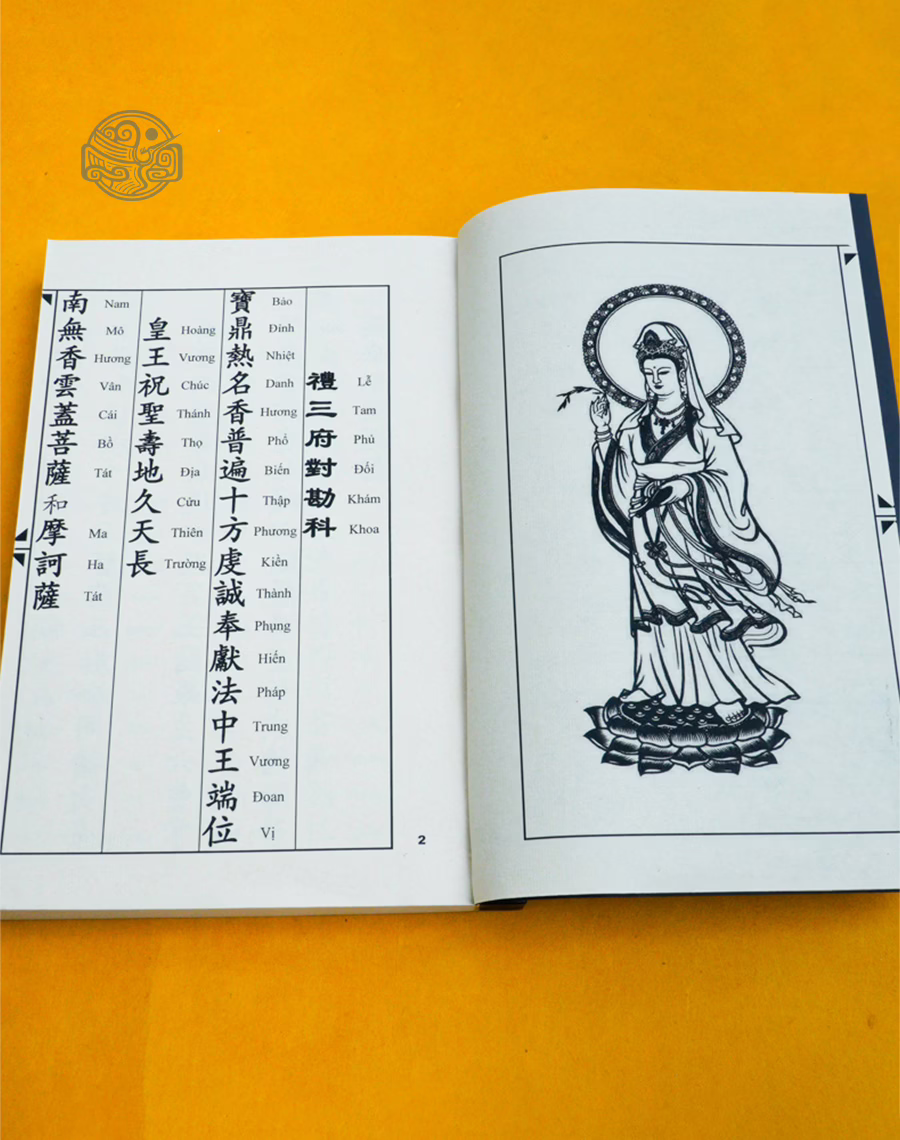 禮三府對勘科
Lễ Tam Phủ Đối Khám Khoa
寶鼎熱名香普遍十方虔誠奉獻法中王端位
Bảo Đỉnh Nhiệt Danh Hương Phổ Biến Thập Phương Kiền Thành Phụng Hiến Pháp Trung Vương Đoan Vị
皇王祝聖壽地久天長
Hoàng Vương Chúc Thánh Thọ Địa Cửu Thiên Trường
南無香雲蓋菩薩和摩訶薩
Nam Mô Hương Vân Cái Bồ Tát Ma Ha Tát
2